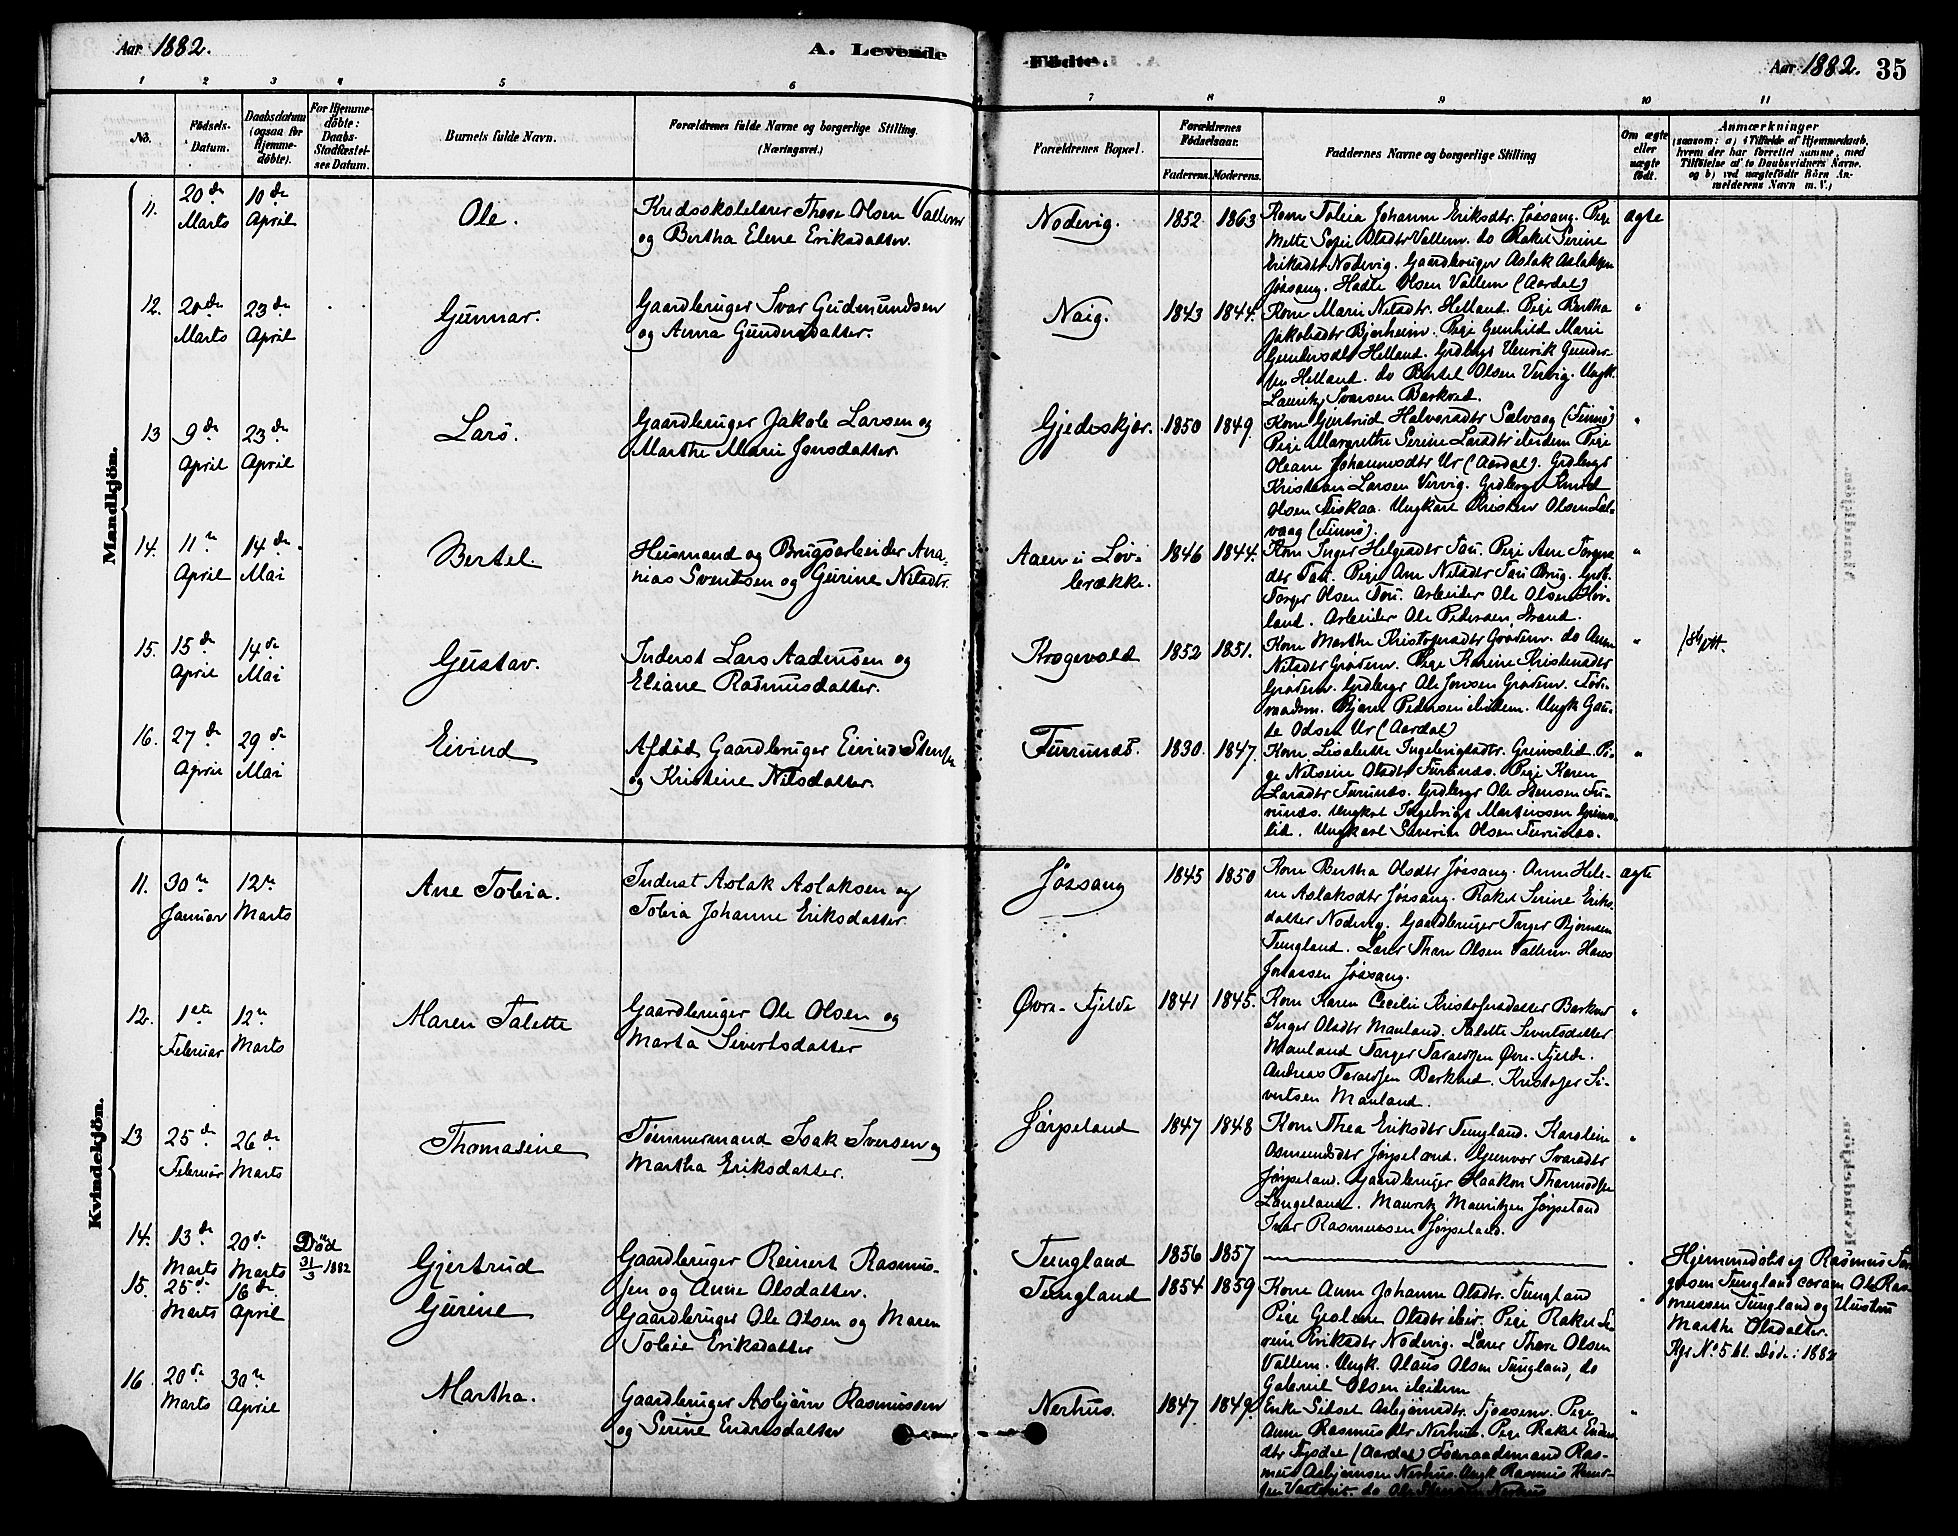 Aar 1882.
A. Levende
Fødte.
Aar 1882. 35
1 2 3 4 5 6 7 8 9 10 11
No.
Födsels-
Datum.
Daabsdatum
(ogsaa for
Hjemme-
döbte).
For Hjemme-
döbte:
Daabs-
Stadfæstel-
ses Datum.
Barnets fulde Navn.
Forældrenes fulde Navne og borgerlige Stilling.
(Næringsvei.)
Forældrenes Bopæl.
Forældrenes
Födselsaar.
Faderens. Moderens.
Faddernes Navne og borgerlige Stilling
Om ægte
eller
uægte
födt.
Anmærkninger
(saasom: a) i Tilfælde af Hjemmedaab,
hvem der har forrettet samme, med
Tilföielse af to Daabsvidners Navne,
og b) ved uægtefödte Börn An-
melderens Navn m. V.)
Mandkjön.
11. 20de Marts 10de April
Ole.
Kredsskolelærer Thore Olsen Vallem
og Bertha Elene Eriksdatter.
Nodevig. 1852 1863
Kone Tobia Johanne Eriksdtr Jøssang. Pige
Mette Sofie Olsdtr Vallem. do Rakel Serine
Eriksdtr Nodevig. Gaardbruger Aslak Aslaksen
Jøssang. Olsen Vallem (Aardal)
ægte
12. 20de Marts 23de April
Gunnar.
Gaardbruger Ivar Gudmundsen
og Anna Gundersdatter.
Naig. 1843 1844.
Kone Marie Nilsdtr Helland. Pige Bertha
Jakobsdtr Bjørheim. Pige Gunhild Marie
Gundersdtr Helland. Grdbrgr Henrik Gunder-
sen Helland. do Bertel Olsen Vervig. Ungk.
Lauritz Ivarsen Barkved.
"
13 9de April 23de April
Lars.
Gaardbruger Jakob Larsen og
Marthe Marie Jonsdatter.
Gjedeskjær. 1850 1849.
Kone Gjertrud Halvorsdtr Salvaag (Finnø)
Pige Margrethe Serine Larsdtr ibidem Pige
Oleane Johannesdtr Ur (Aardal). Grdbrgr
Kristian Larsen Vervig. Grdbrgr Knud
Olsen Fiskaa. Ungkarl Kristen Olsen Sal-
vaag (Finnø).
"
14. 11te April 14de Mai
Bertel
Husmand og Brugsarbeider Ana-
nias Svendsen og Gurine Nilsdtr.
Aaen i Løv-
brække. 1846 1844.
Kone Inger Helgesdtr Tau. Pige Ane Torgers-
dtr Tau. Pige Ane Nilsdtr Tau Brug. Grdb.
Torger Olsen Tou. Arbeider Ole Olsen Hov-
land. Arbeider Ole Pedersen, Strand.
"
15. 15de April 14de Mai
Gustav.
Inderst Lars Aadnesen og
Eliane Rasmusdatter.
Krogevold 1852 1851.
Kone Marthe Kristofersdtr Grødem. do Anne
Nilsdtr Grødem. Pige Karine Kristensdtr
Grødem. Grdbrgr Ole Jonsen Grødem. For-
raadsm. Bjarne Pedersen ibidem. Ungk Gau-
te Odsen Ur (Aardal)
"
16. 27de April 29de Mai
Eivind
Afdød Gaardbruger Eivind Stens
og Kristine Nilsdatter.
Furunæs. 1830. 1847.
Kone Lisabette Ingebrigtsdtr. Greimslid. Pi-
ge Nilsine Olsdtr Furunæs. Pige Karen
Larsdtr Furunæs. Grdbrgr Ole Stensen Fu-
runæs. Ungkarl Ingebrigt Martinssen Greims-
lid. Ungkarl Severin Olsen Furunæs.
"
Kvindekjön.
11. 30te Januar 12te Marts
Ane Tobia.
Inderst Aslak Aslaksen og
Tobia Johanne Eriksdatter.
Jøssang 1845 1850
Kone Bertha Olsdtr Jøssang. Anne Hel-
en Aslaksdtr Jøssang. Rakel Serine Eriks-
datter Nodevig. Gaardbruger Torger Bjørnsen
Tungland. Lærer Thore Olsen Vallem. Hans
Jonassen Jøssang.
ægte
12. 1ste Februar 12te Marts
Maren Talette
Gaardbruger Ole Olsen og
Marta Sivertsdatter
Øvre-Fjelde 1841 1845.
Kone Karen Cecilie Kristofersdatter Barkved
Inger Olsdtr Mauland. Talette Sivertsdatter
Mauland Torger Taraldsen Øvre-Fjelde.
Andreas Taraldsen Barkved. Kristofer Si-
vertsen Mauland.
"
13 25de Februar 26de Marts
Thomasine
Tømmermand Isak Iversen og
Martha Eriksdatter.
Jørpeland 1847 1848
Kone Thea Eriksdtr Tungland. Karoline
Osmundsdtr Jørpeland. Gunvor Ivarsdtr
Jørpeland. Gaardbruger Haakon Thormodsen
Langeland. Mauritz Mauritzen Jørpeland
Ivar Rasmussen Jørpeland.
"
14. 13de Marts 20de Marts Död 31/3 1882
Gjertrud
Gaardbruger Reinert Rasmus-
sen og Anne Olsdatter.
Tungland 1856 1857
Hjemmedøbt af Rasmus Tor-
gersen Tungland coram Ole Ras-
mussen Tungland og Hustru
Marthe Olsdatter.
Kfr No 5 bl. Døde: 1882
15. 25de Marts 16de April
Gurine
Gaardbruger Ole Olsen og Maren
Tobie Eriksdatter
Tungland 1854 1859
Kone Anne Johanne Olsdtr. Tungland
Pige Olsdtr ibid. Pige Rakel Se-
rine Eriksdtr Nodevig. Lærer Thore Olsen
Vallem. Ungk. Olaus Olsen Tungland, do
Gabriel Olsen ibidem
"
16. 20de Marts 30te April
Martha.
Gaardbruger Asbjørn Rasmussen
og Serine Endresdatter
Nerhus. 1847 1849.
Enke Sidsel Asbjørnsdtr. Tjøssem. Pige
Anne Rasmusdtr Nerhus. Pige Rakel Endres-
dtr Tysdal (Aardal) Forraadsmand Ras-
mus Asbjørnsen Nerhus. Ungk Rasmus
do Ole Nerhus
"